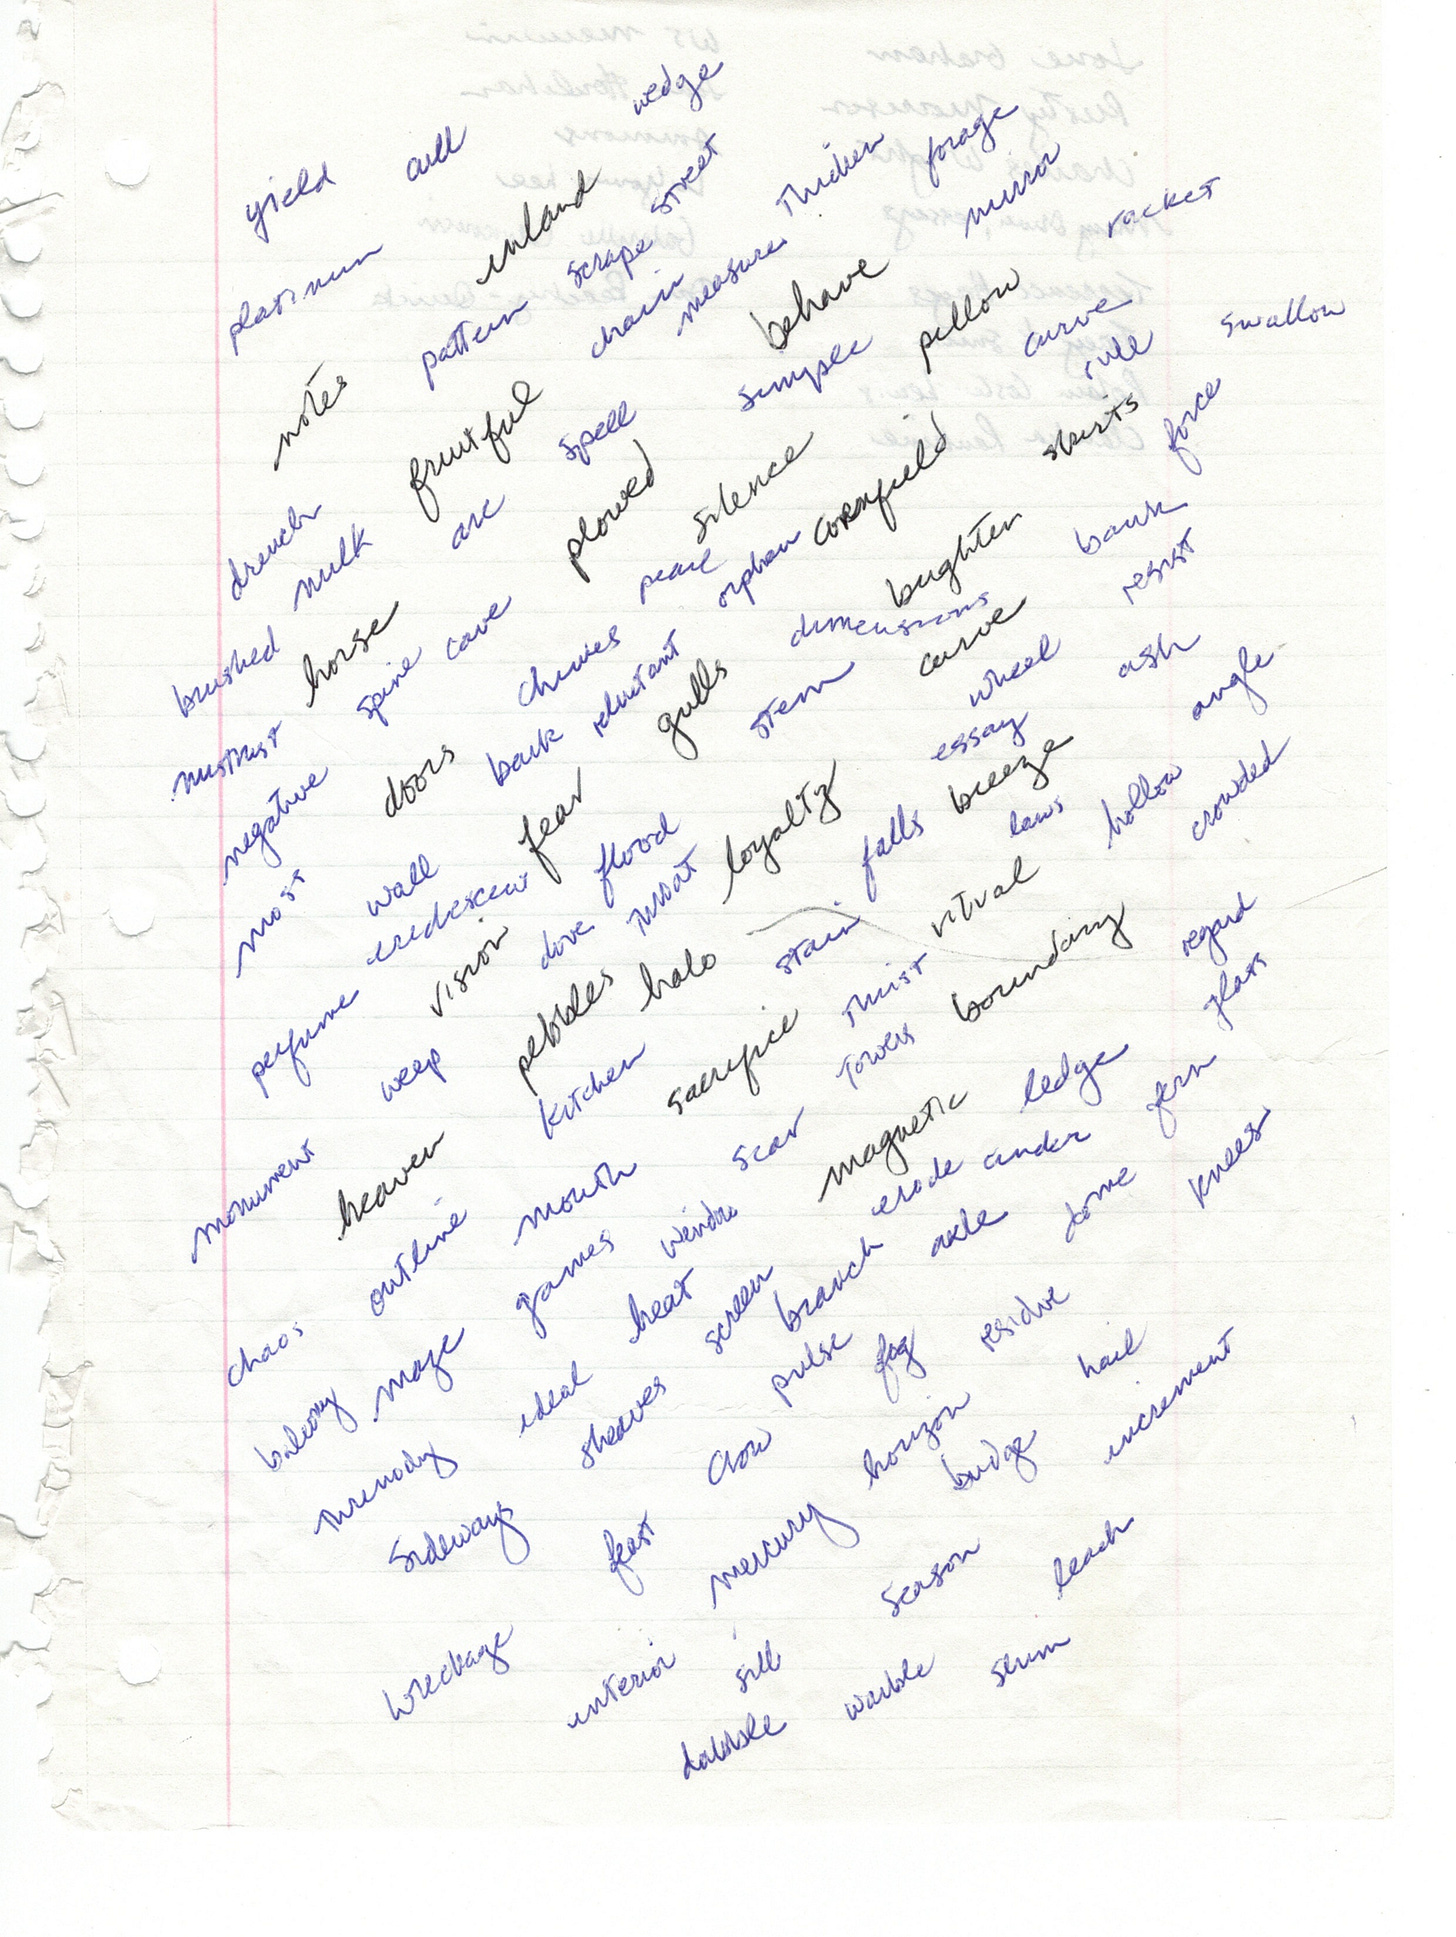 yield cull wedge
platinum inland
notes pattern scrape street
drench fruitful chain measure thicken forage
brushed milk arc spell behave mirror
mistrust horse plowed simple pillow racket
negative spine cave silence curve
moss doors chimes pearl orphan cornfield skirts rule swallow
wall bark reluctant brighten force
perfume iridescent fear gulls dimensions bank
weep vision dove flood stem curve resist
monument pebbles throat loyalty essay wheel ash
heaven kitchen halo stain falls breeze angle
chaos outline sacrifice thirst ritual laws hollow crowded
balcony maze mouth scar towers boundary regard
threnody games window magnetic ledge glass
sideways ideal heat erode cinder fern
sheaves screen branch axle dome knees
wreckage feast crow pulse fog residue
interior mercury horizon hail
sill season bridge increment
dabble warble serum leach